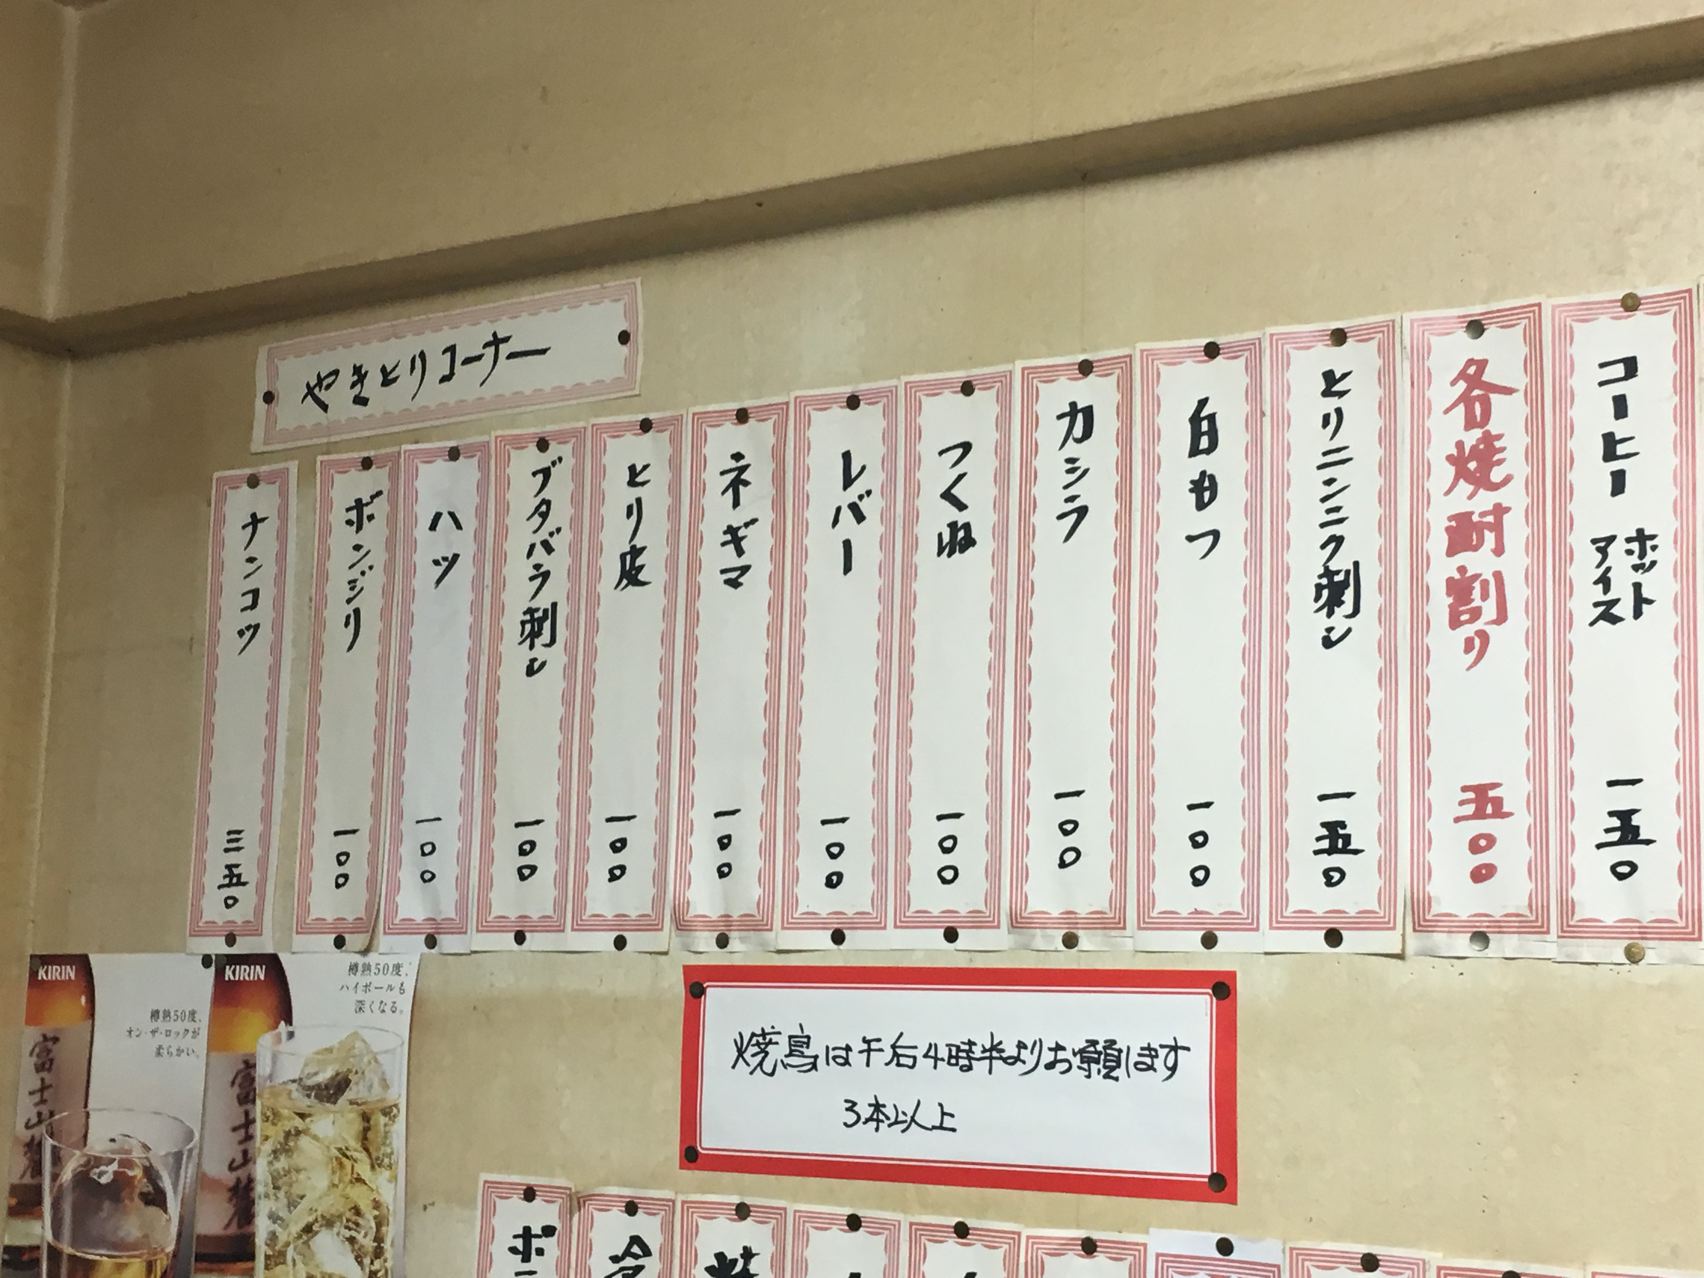 やきとりコーナー
コーヒー ホット アイス 一五〇
各焼酎割り 五〇〇
とりニンニク刺し 一五〇
白もつ 一〇〇
カシラ 一〇〇
つくね 一〇〇
レバー 一〇〇
ネギマ 一〇〇
とり皮 一〇〇
ブタバラ刺し 一〇〇
ハツ 一〇〇
ボンジリ 一〇〇
ナンコツ 三五〇
焼鳥は午后4時半よりお願います
3本以上
KIRIN
樽熟50度、
オン・ザ・ロックが
柔らかい。
富士山麓
KIRIN
樽熟50度、
ハイボールも
深くなる。
富士山麓